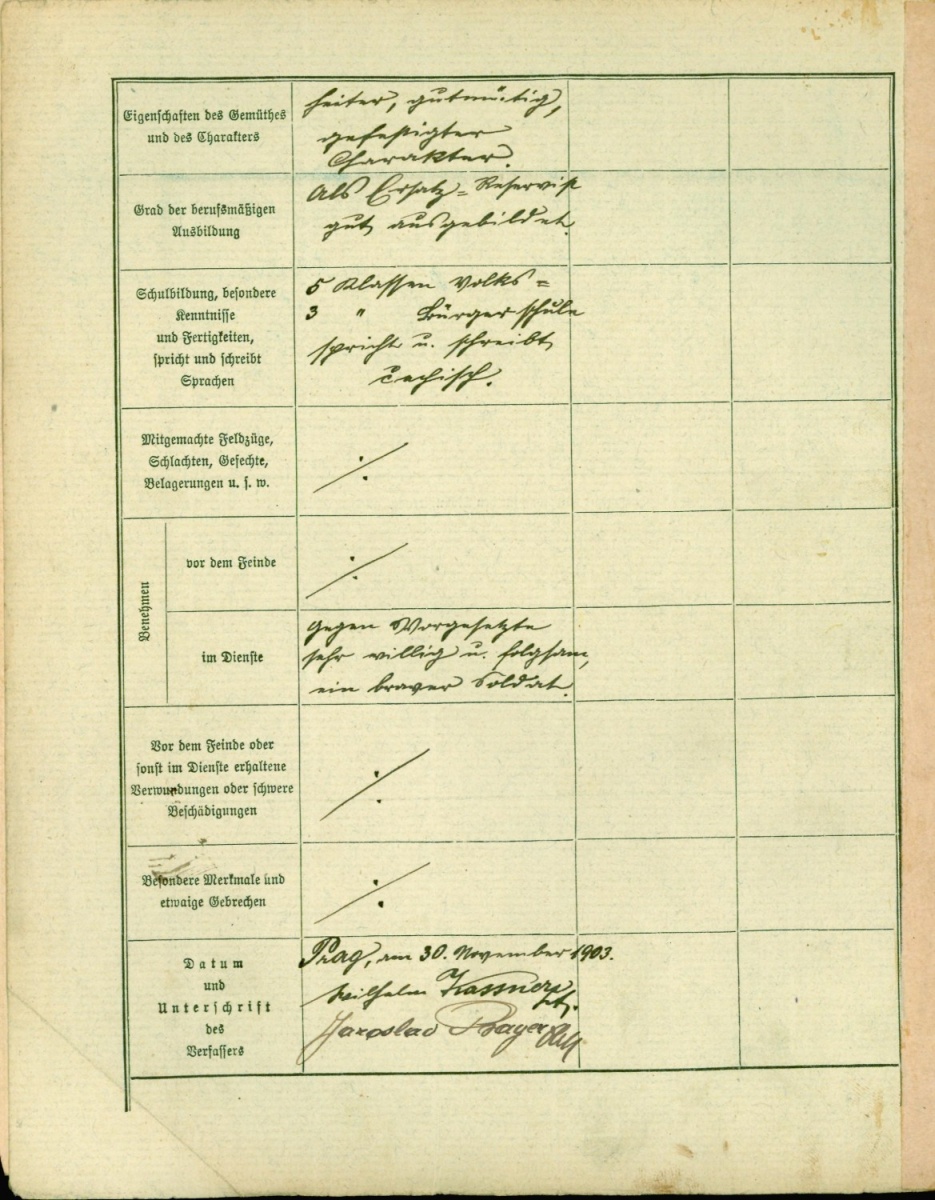 Eigenschaften des Gemüthes
und des Charakters
heiter, gutmütig,
gefestigter
Charakter.
Grad der berufsmäßigen
Ausbildung
Als Ersatz=Reservist
gut ausgebildet.
Schulbildung, besondere
Kenntnisse
und Fertigkeiten,
spricht und schreibt
Sprachen
5 Klassen Volks=
3 " Bürgerschule
spricht u. schreibt
čechisch.
Mitgemachte Feldzüge,
Schlachten, Gefechte,
Belagerungen u. s. w.
⁒
Benehmen
vor dem Feinde
⁒
im Dienste
gegen Vorgesetzte
sehr willig u. folgsam,
ein braver Soldat.
Vor dem Feinde oder
sonst im Dienste erhaltene
Verwundungen oder schwere
Beschädigungen
⁒
Besondere Merkmale und
etwaige Gebrechen
⁒
Datum
und
Unterschrift
des
Verfassers
Prag, am 30. November 1903.
Wilhelm
Jaroslav